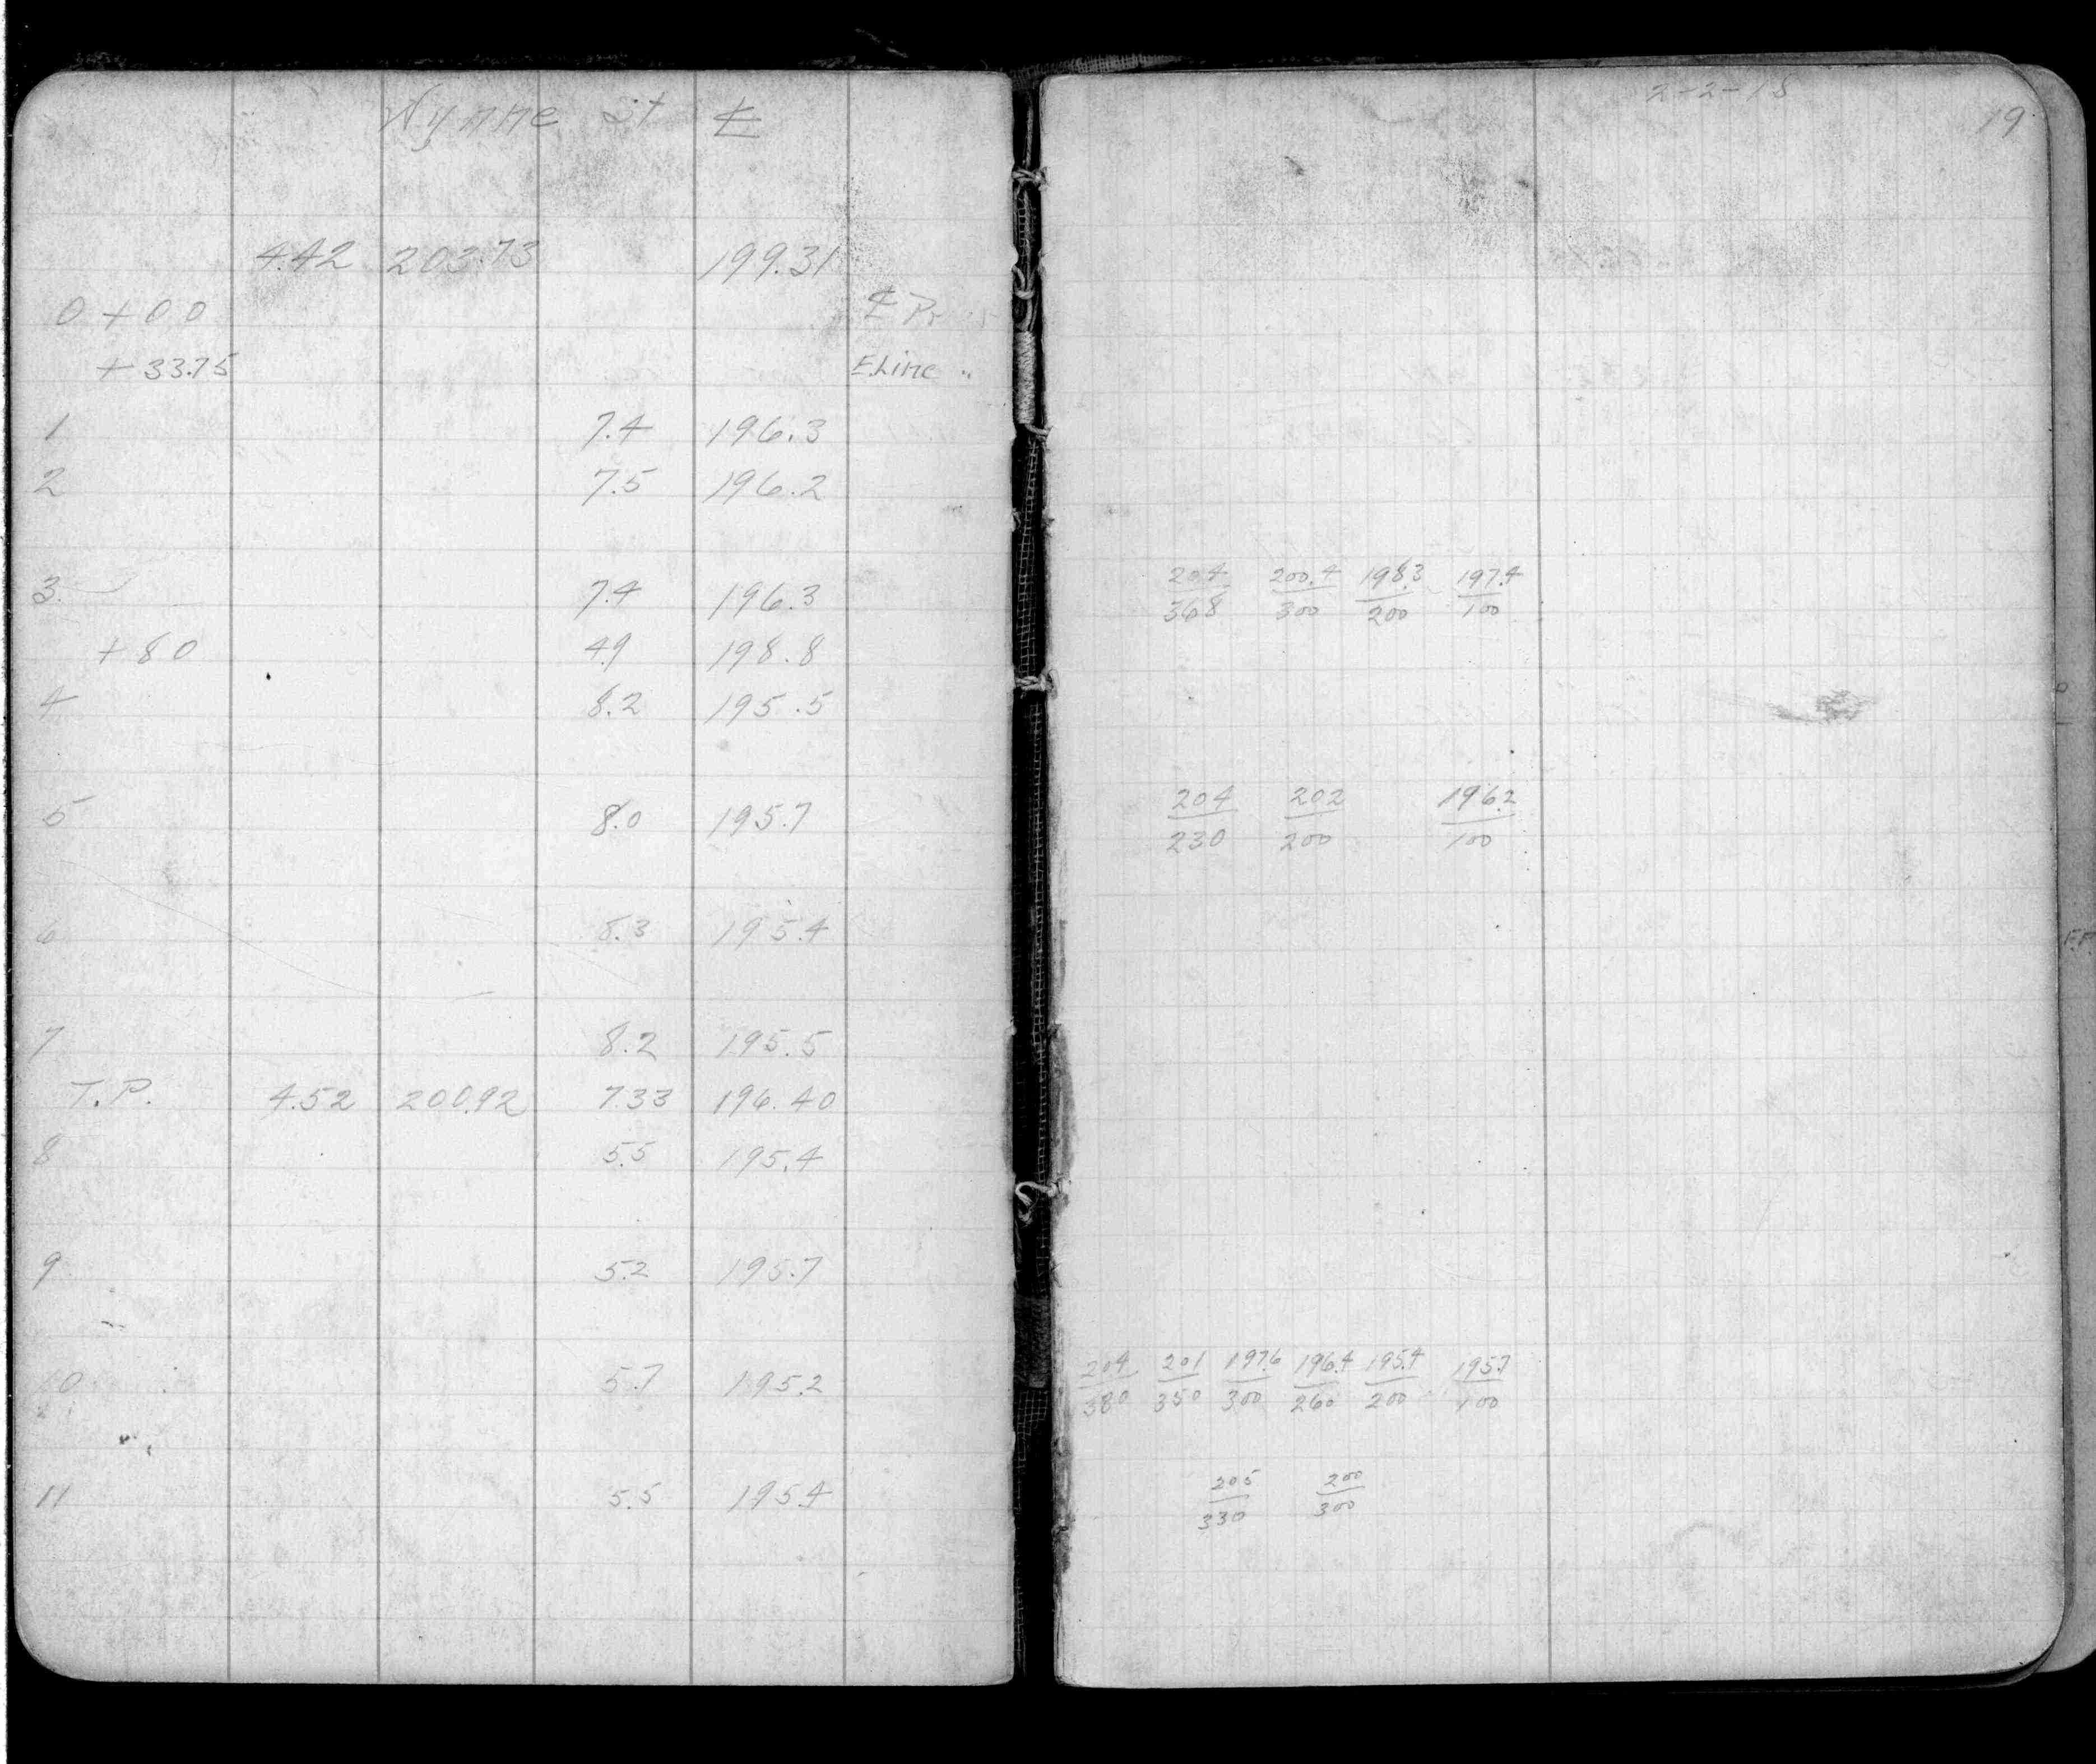 Wynne St ℄
4.42 203.73 199.31
0+00 ℄
+33.75 E.Line "
1 7.4 196.3
2 7.5 196.2
3 7.4 196.3
+80 4.9 198.8
4 8.2 195.5
5 8.0 195.7
6 8.3 195.4
7 8.2 195.5
T.P. 4.52 200.92 7.33 196.40
8 5.5 195.4
9 5.2 195.7
10 5.7 195.2
11 5.5 195.4
2-2-18
19
204 200.4 198.3 197.4
368 300 200 100
204 202 196.2
230 200 100
204 201 197.6 196.4 195.4 195.7
380 350 300 260 200 100
205 200
330 300